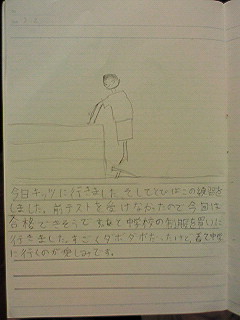 今日キッツに行きました。そしてとびばこの練習を
しました。前テストを受けなかったので今回は
合格できそうで
中学校の制服を買いに
行きました。すごくダボダボだったけど、着て中学
に行くのが楽しみです。